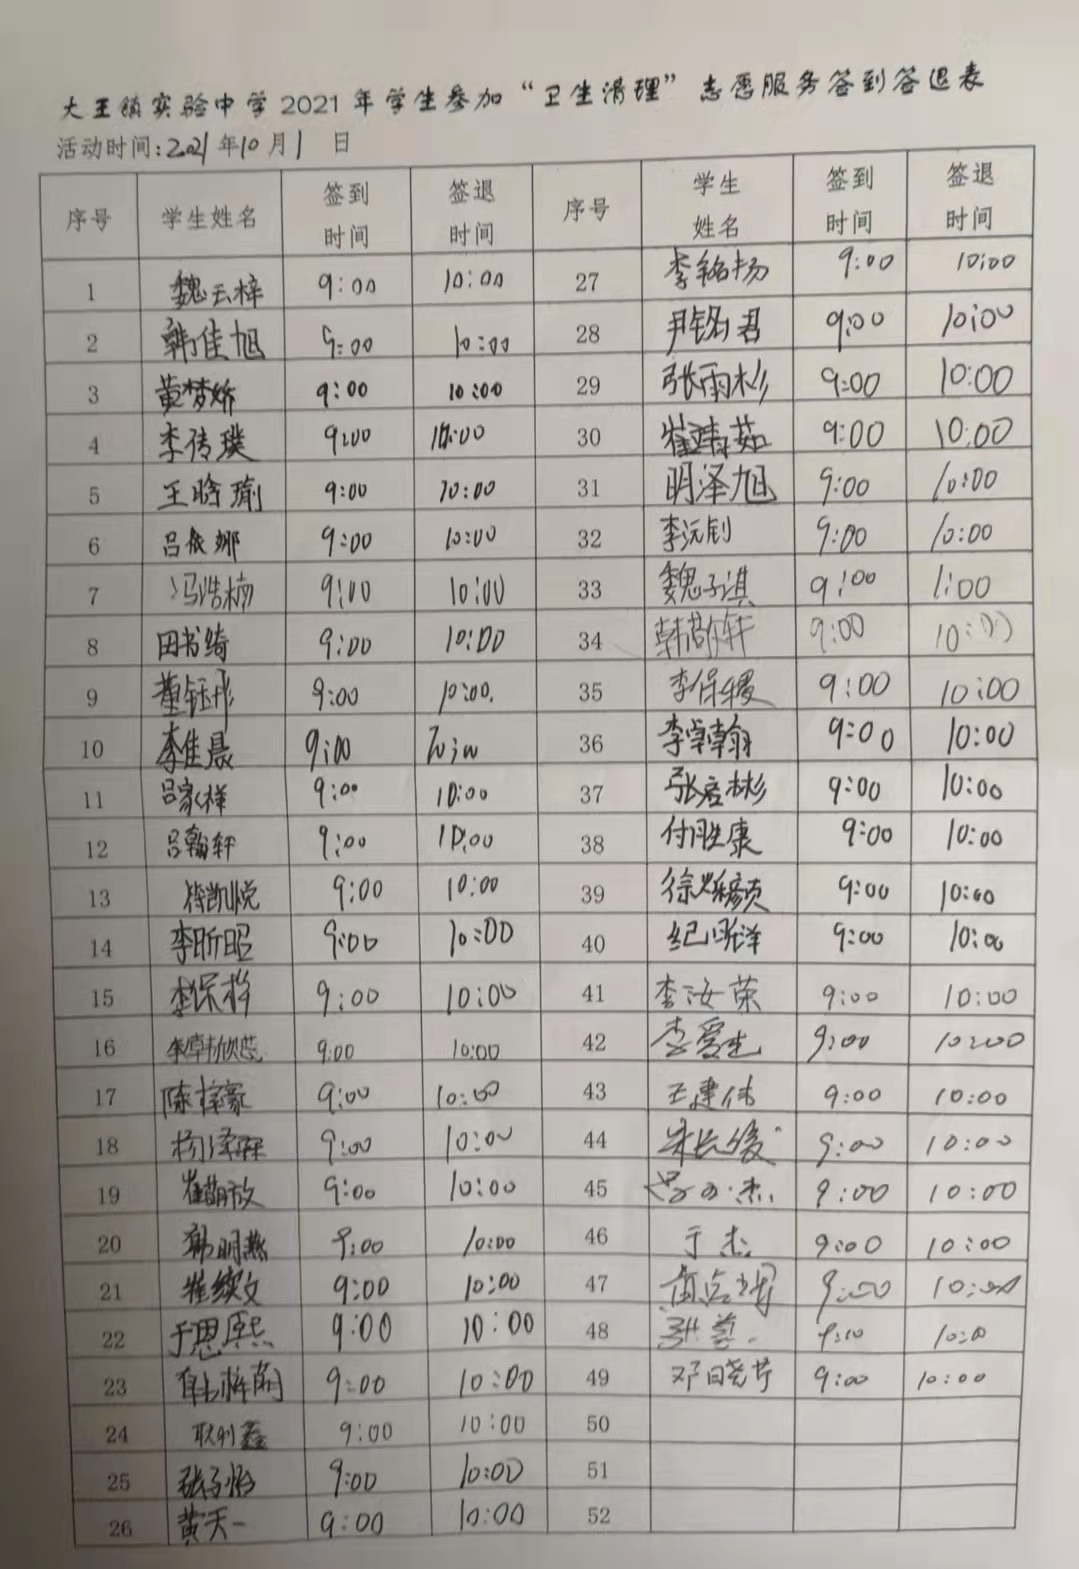 大王镇实验中学2021年学生参加“卫生清理”志愿服务签到签退表
活动时间:2021年10月1日
序号 学生姓名 签到时间 签退时间 序号 学生姓名 签到时间 签退时间
1 魏云梓 9:00 10:00 27 李铭扬 9:00 10:00
2 韩佳旭 9:00 10:00 28 尹铭君 9:00 10:00
3 黄梦娇 9:00 10:00 29 张雨杉 9:00 10:00
4 李传璞 9:00 10:00 30 崔靖茹 9:00 10:00
5 王晗瑜 9:00 10:00 31 明泽旭 9:00 10:00
6 吕依娜 9:00 10:00 32 李沅钊 9:00 10:00
7 冯浩楠 9:00 10:00 33 魏子淇 9:00 1:00
8 田书绮 9:00 10:00 34 韩敬轩 9:00 10:00
9 董钰彤 9:00 10:00 35 李保稷 9:00 10:00
10 李佳晨 9:00 36 李卓翰 9:00 10:00
11 吕家祥 9:00 10:00 37 张君彬 9:00 10:00
12 吕翰轩 9:00 10:00 38 付胜康 9:00 10:00
13 凯悦 9:00 10:00 39 徐 9:00 10:00
14 李昕昭 9:00 10:00 40 纪明泽 9:00 10:00
15 李保梓 9:00 10:00 41 李汝荣 9:00 10:00
16 9:00 10:00 42 李爱生 9:00 10:00
17 陈梓豪 9:00 10:00 43 王建伟 9:00 10:00
18 杨泽霖 9:00 10:00 44 9:00 10:00
19 9:00 10:00 45 9:00 10:00
20 韩明燕 9:00 10:00 46 于杰 9:00 10:00
21 崔续文 9:00 10:00 47 9:00 10:00
22 于恩熙 9:00 10:00 48 9:00 10:0
23 9:00 10:00 49 邓晓芹 9:00 10:00
24 耿利鑫 9:00 10:00 50
25 张子怡 9:00 10:00 51
26 黄天一 9:00 10:00 52